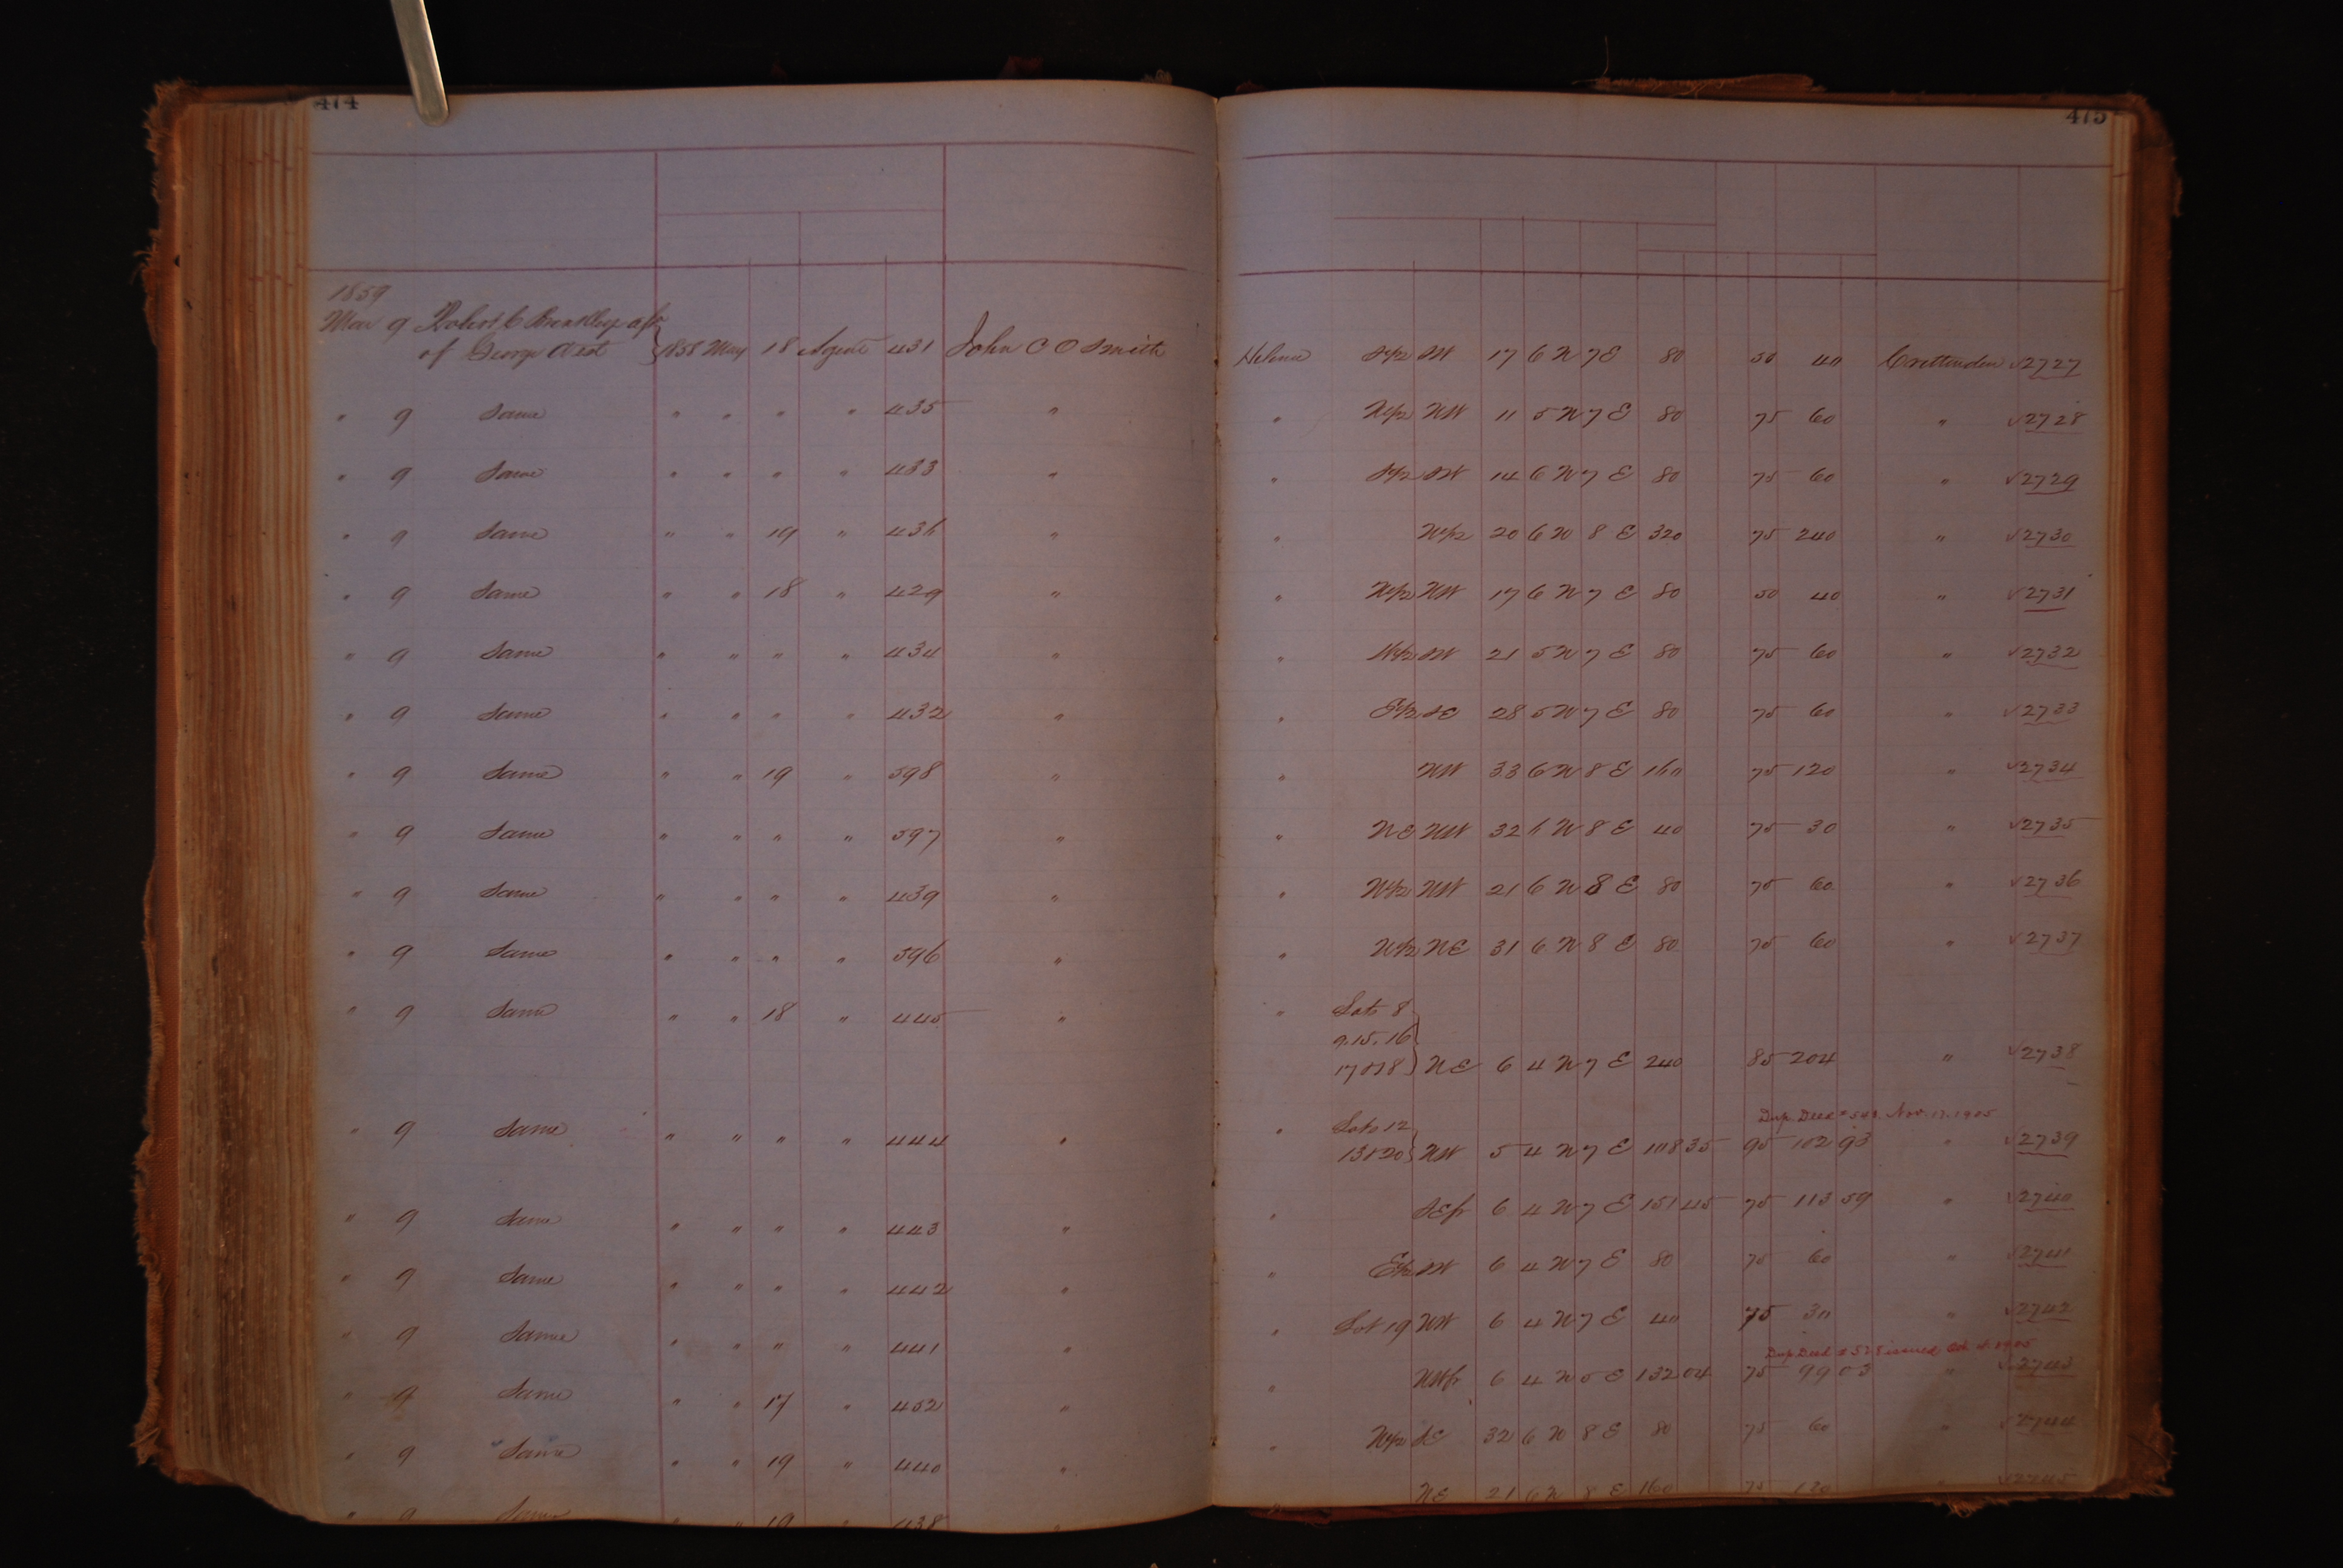 474
475
1859
Mar 9 Robert C Brinkley assee
of George West } 1858 May 18 Agent 431 John C O Smith Helena S1/2 SW 17 6 N 7 E 80 50 40 Crittenden √2727
" 9 Same " " " " 435 " " N1/2 NW 11 5 N 7 E 80 75 60 " √2728
" 9 Same " " " " 433 " " S1/2 SW 14 6 N 7 E 80 75 60 " √2729
" 9 Same " " 19 " 436 " " W1/2 20 6 N 8 E 320 75 240 " √2730
" 9 Same " " 18 " 429 " " NW 17 6 N 7 E 80 50 40 " √2731
" 9 Same " " " " 434 " " SW 21 5 N 7 E 80 75 60 " √2732
" 9 Same " " " " 432 " " E1/2 SE 28 5 N 7 E 80 75 60 " √2733
" 9 Same " " 19 " 598 " " NW 33 6 N 8 E 160 75 120 " √2734
" 9 Same " " " " 597 " " NE NW 32 6 N 8 E 40 75 30 " √2735
" 9 Same " " " " 439 " " W1/2 NW 21 6 N 8 E 80 75 60 " √2736
" 9 Same " " " " 596 " " NE 31 6 N 8 E 80 75 60 " √2737
" 9 Same " " 18 " 445 " " Lots 8
9.15.16
17 & 18 } NE 6 4 N 7 E 240 85 204 " √2738
Dup. Deed # Nov. 17. 1905
" 9 Same " " " " 444 " " Lots 12
13 & 20 } NW 5 4 N 7 E 108 35 95 102 93 " √2739
" 9 Same " " " " 443 " " SE fr 6 4 N 7 E 151 45 75 113 59 " √2740
" 9 Same " " " " 442 " " E1/2 SW 6 4 N 7 E 80 75 60 " √2741
" 9 Same " " " " 441 " " Lot 19 NW 6 4 N 7 E 40 75 30 " √2742
Dup Deed # 528 issued Oct 1905
" 9 Same " " 17 " 452 " " NW fr 6 4 N 5 E 132 04 75 99 03 " √2743
" 9 Same " " 19 " 440 " " W1/2 SE 32 6 N 8 E 80 75 60 " √2744
" 9 Same " " 19 " 438 " " NE 21 6 N 8 E 160 75 120 " √2745